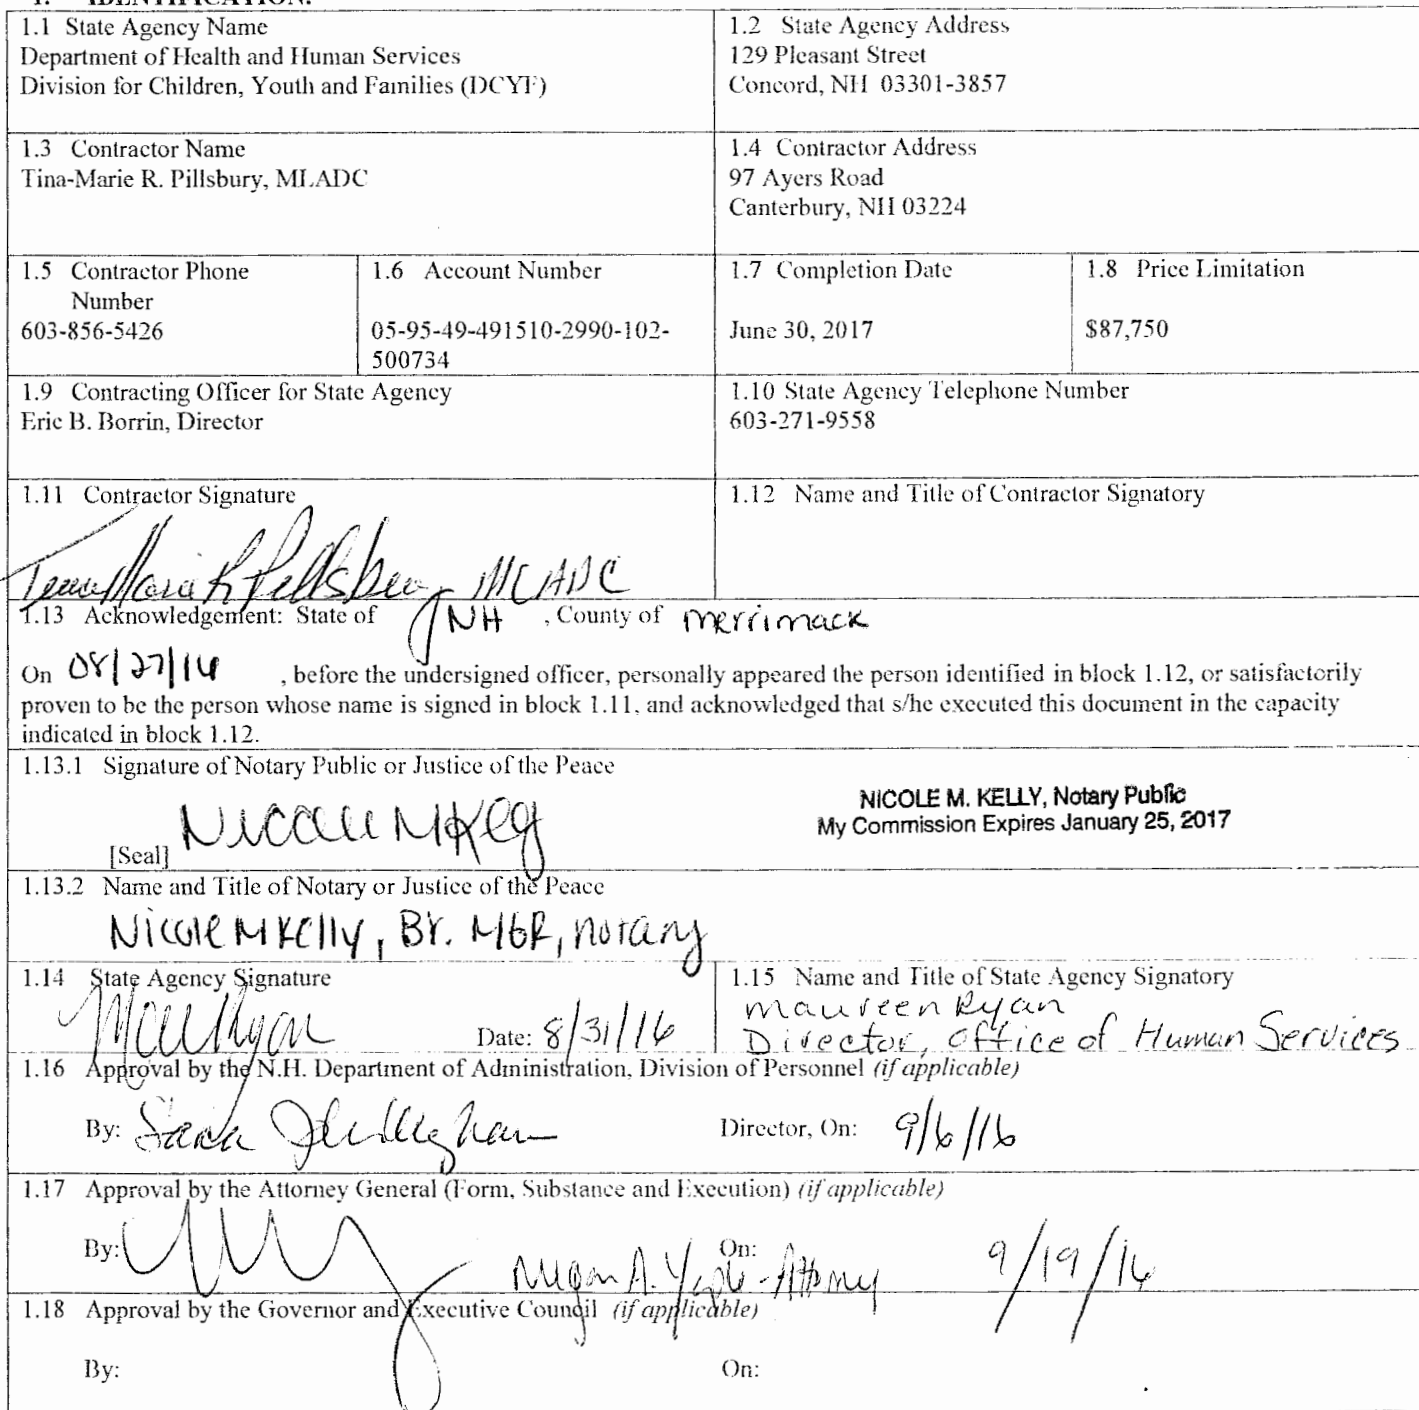 1. IDENTIFICATION.
1.1 State Agency Name
Department of Health and Human Services
Division for Children, Youth and Families (DCYF)
1.2 State Agency Address
129 Pleasant Street
Concord, NH 03301-3857
1.3 Contractor Name
Tina-Marie R. Pillsbury, MLADC
1.4 Contractor Address
97 Ayers Road
Canterbury, NH 03224
1.5 Contractor Phone
Number
603-856-5426
1.6 Account Number
05-95-49-491510-2990-102-
500734
1.7 Completion Date
June 30, 2017
1.8 Price Limitation
$87,750
1.9 Contracting Officer for State Agency
Eric B. Borrin, Director
1.10 State Agency Telephone Number
603-271-9558
1.11 Contractor Signature
MLADC
1.12 Name and Title of Contractor Signatory
1.13 Acknowledgement: State of NH , County of merrimack
On 08/27/16 , before the undersigned officer, personally appeared the person identified in block 1.12, or satisfactorily
proven to be the person whose name is signed in block 1.11, and acknowledged that s/he executed this document in the capacity
indicated in block 1.12.
1.13.1 Signature of Notary Public or Justice of the Peace
NICOLE M. KELLY, Notary Public
My Commission Expires January 25, 2017
Nicole M Kelly
[Seal]
1.13.2 Name and Title of Notary or Justice of the Peace
Nicole M Kelly, Br. MGR, notary
1.14 State Agency Signature
Date: 8/31/16
1.15 Name and Title of State Agency Signatory
maureen Ryan
Director, Office of Human Services
1.16 Approval by the N.H. Department of Administration, Division of Personnel (if applicable)
By:
Director, On: 9/6/16
1.17 Approval by the Attorney General (Form, Substance and Execution) (if applicable)
By:
Megan A. - Attorney
On: 9/19/16
1.18 Approval by the Governor and Executive Council (if applicable)
By:
On: